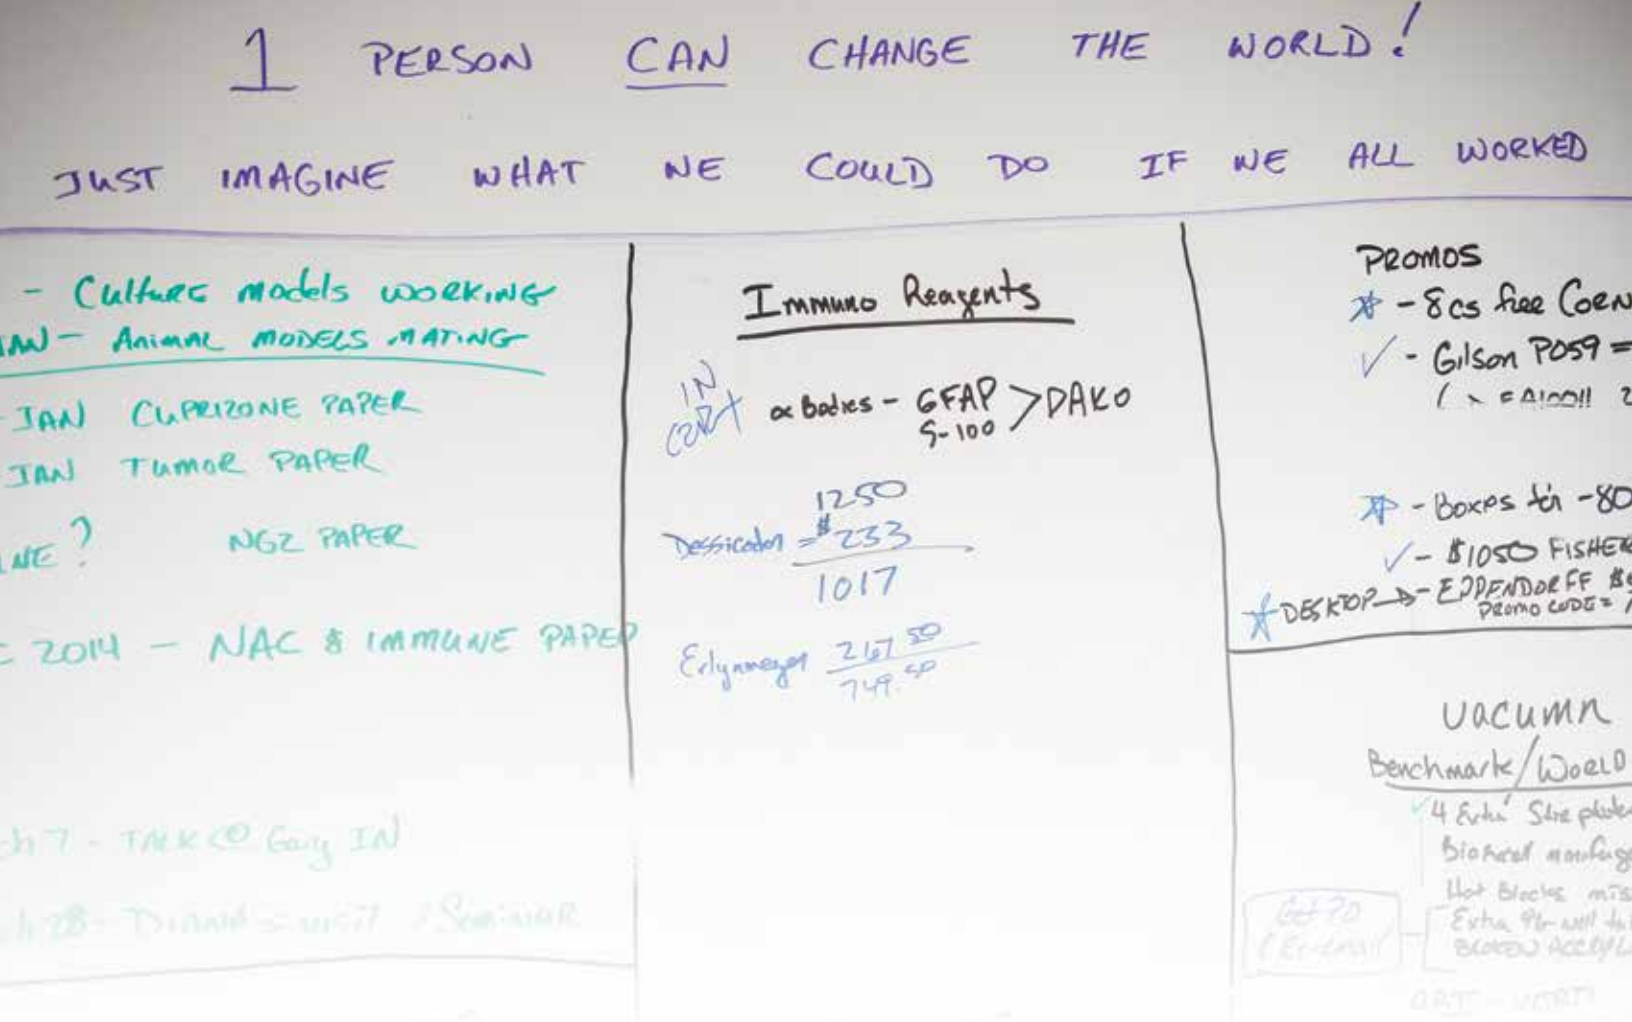 1 PERSON CAN CHANGE THE WORLD!
JUST IMAGINE WHAT WE COULD DO IF WE ALL WORKED
- Culture models WORKING
- Animal MODELS MATING
- JAN CUPRIZONE PAPER
JAN TUMOR PAPER
? NG2 PAPER
2014 - NAC & IMMUNE PAPER
ch 7 - TALK @ Gary IN
ch 28 - Seminar
Immuno Reagents
IN CART
α Bodies - GFAP > DAKO
S-100
1250
Dessicator = $233
1017
Erlynmeyer 267 50
749.50
PROMOS
- 8cs free CORN
- Gilson
- Boxes for -80
- $1050 FISHER
DESKTOP → - EPPENDORFF $
PROMO CODE =
VACUMN
Benchmark/WORLD
4 Extra
Hot Blocks mis
Extra
BROKEN